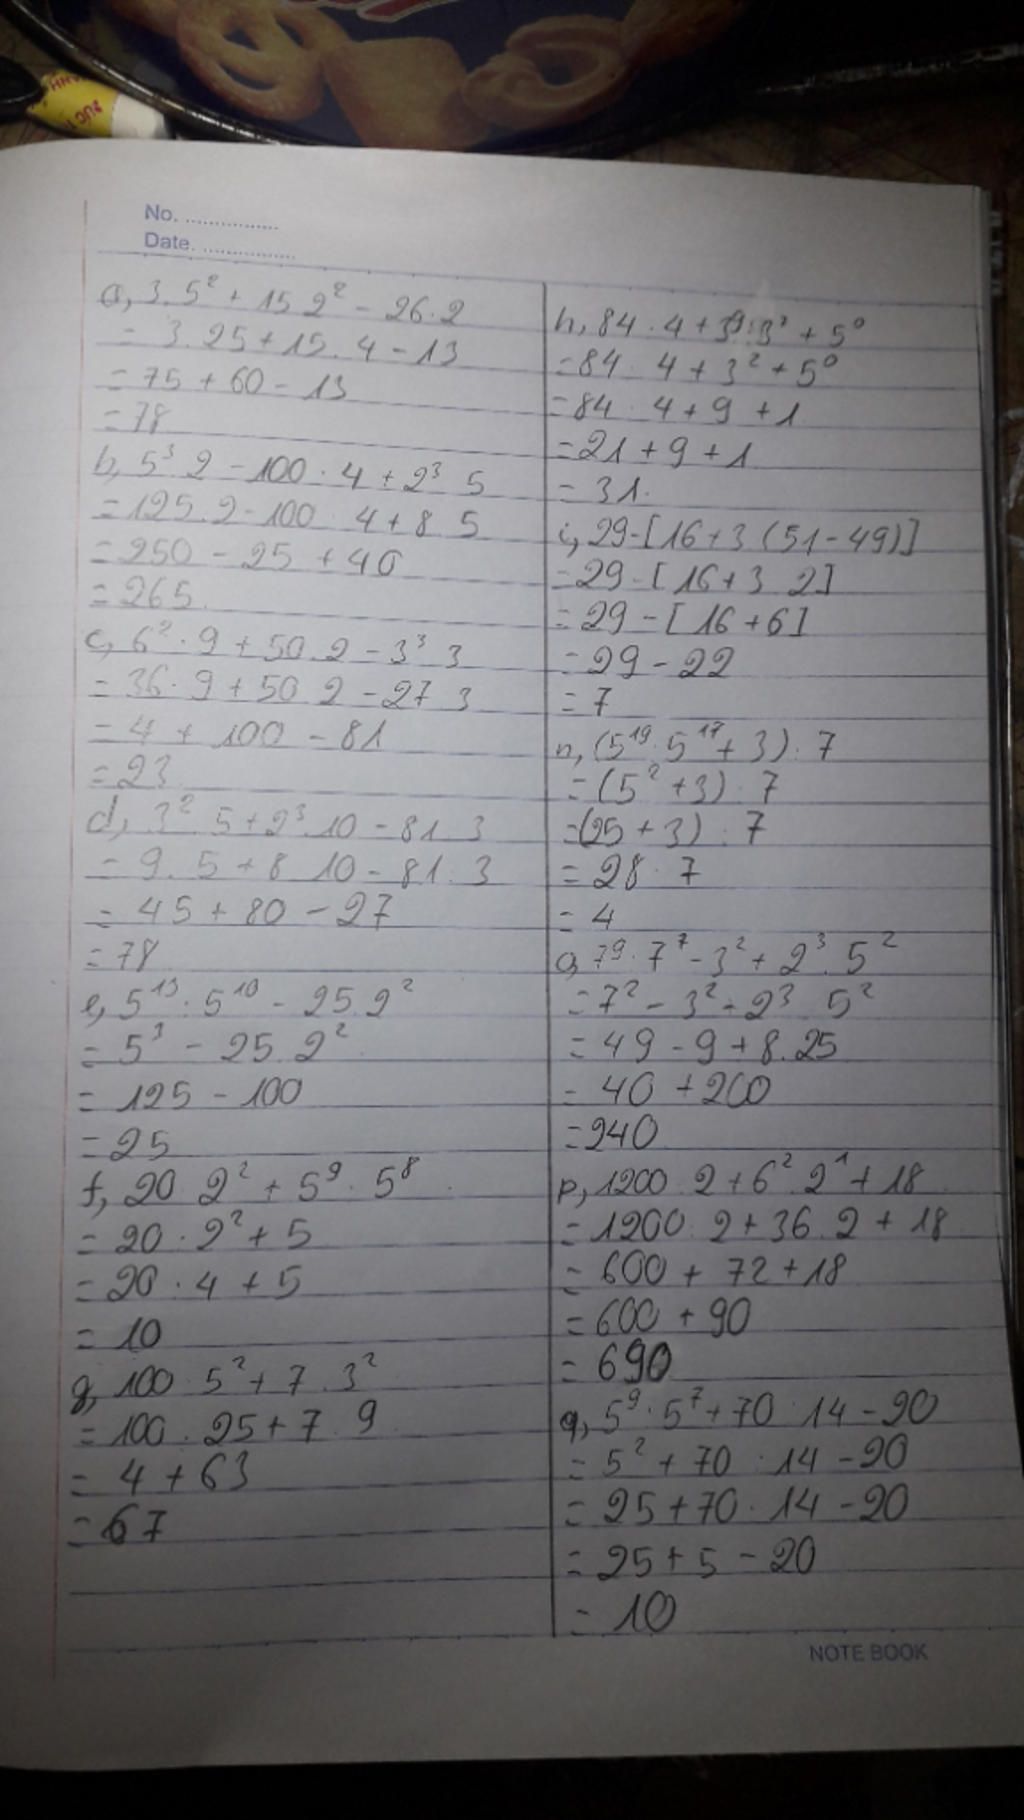 BUC 1
No. ...............
Date. ...............
a, 3.5² + 15 2² - 26:2
= 3.25+15.4-13
= 75 + 60 - 13
= 78
b, 5³ 2 - 100 : 4 + 2³ 5
= 125.2-100 : 4+8 5
= 250 - 25 + 40
= 265
c, 6² : 9 + 50.2 - 3³ 3
= 36 : 9 + 50 2 - 27 3
= 4 + 100 - 81
= 23
d, 3² 5+2³.10 - 81:3
= 9. 5 + 8 10 - 81:3
= 45 + 80 - 27
= 78
e, 5¹³ : 5¹⁰ - 25.2²
= 5³ - 25.2²
= 125 - 100
= 25
f, 20 : 2² + 5⁹ : 5⁸
= 20 : 2² + 5
= 20 : 4 + 5
= 10
g, 100 : 5² + 7 . 3²
= 100 : 25 + 7 . 9
= 4 + 63
= 67
h, 84 : 4 + 3⁹ : 3⁷ + 5⁰
= 84 : 4 + 3² + 5⁰
= 84 : 4 + 9 + 1
= 21 + 9 + 1
= 31.
i, 29-[16+3 (51-49)]
= 29-[16+3 2]
= 29-[16+6]
= 29 - 22
= 7
n, (5¹⁹ : 5¹⁷ + 3) : 7
= (5² + 3) : 7
= (25 + 3) : 7
= 28 : 7
= 4
79 : 7⁷ - 3² + 2³ . 5²
= 7² - 3² + 2³ 5²
= 49 - 9 + 8.25
= 40 + 200
= 240
p, 1200 : 2 + 6² 2¹ + 18
= 1200 : 2 + 36.2 + 18
= 600 + 72 + 18
= 600 + 90
= 690
q, 5⁹ : 5⁷ + 70 : 14 - 20
= 5² + 70 : 14 - 20
= 25 + 70 : 14 - 20
= 25 + 5 - 20
= 10
NOTE BOOK